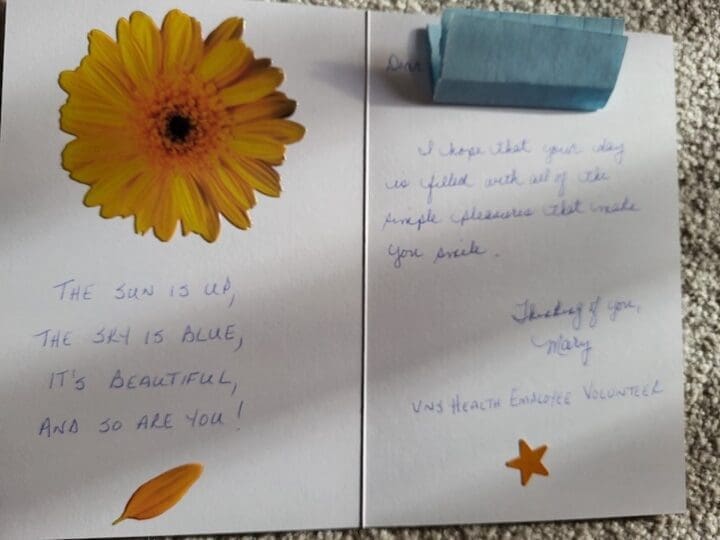 THE SUN IS UP,
THE SKY IS BLUE,
IT'S BEAUTIFUL,
AND SO ARE YOU!
Dear
I hope that your day
is filled with all of the
simple pleasures that make
you smile.
Thinking of you,
Mary
VNS HEALTH EMPLOYEE VOLUNTEER